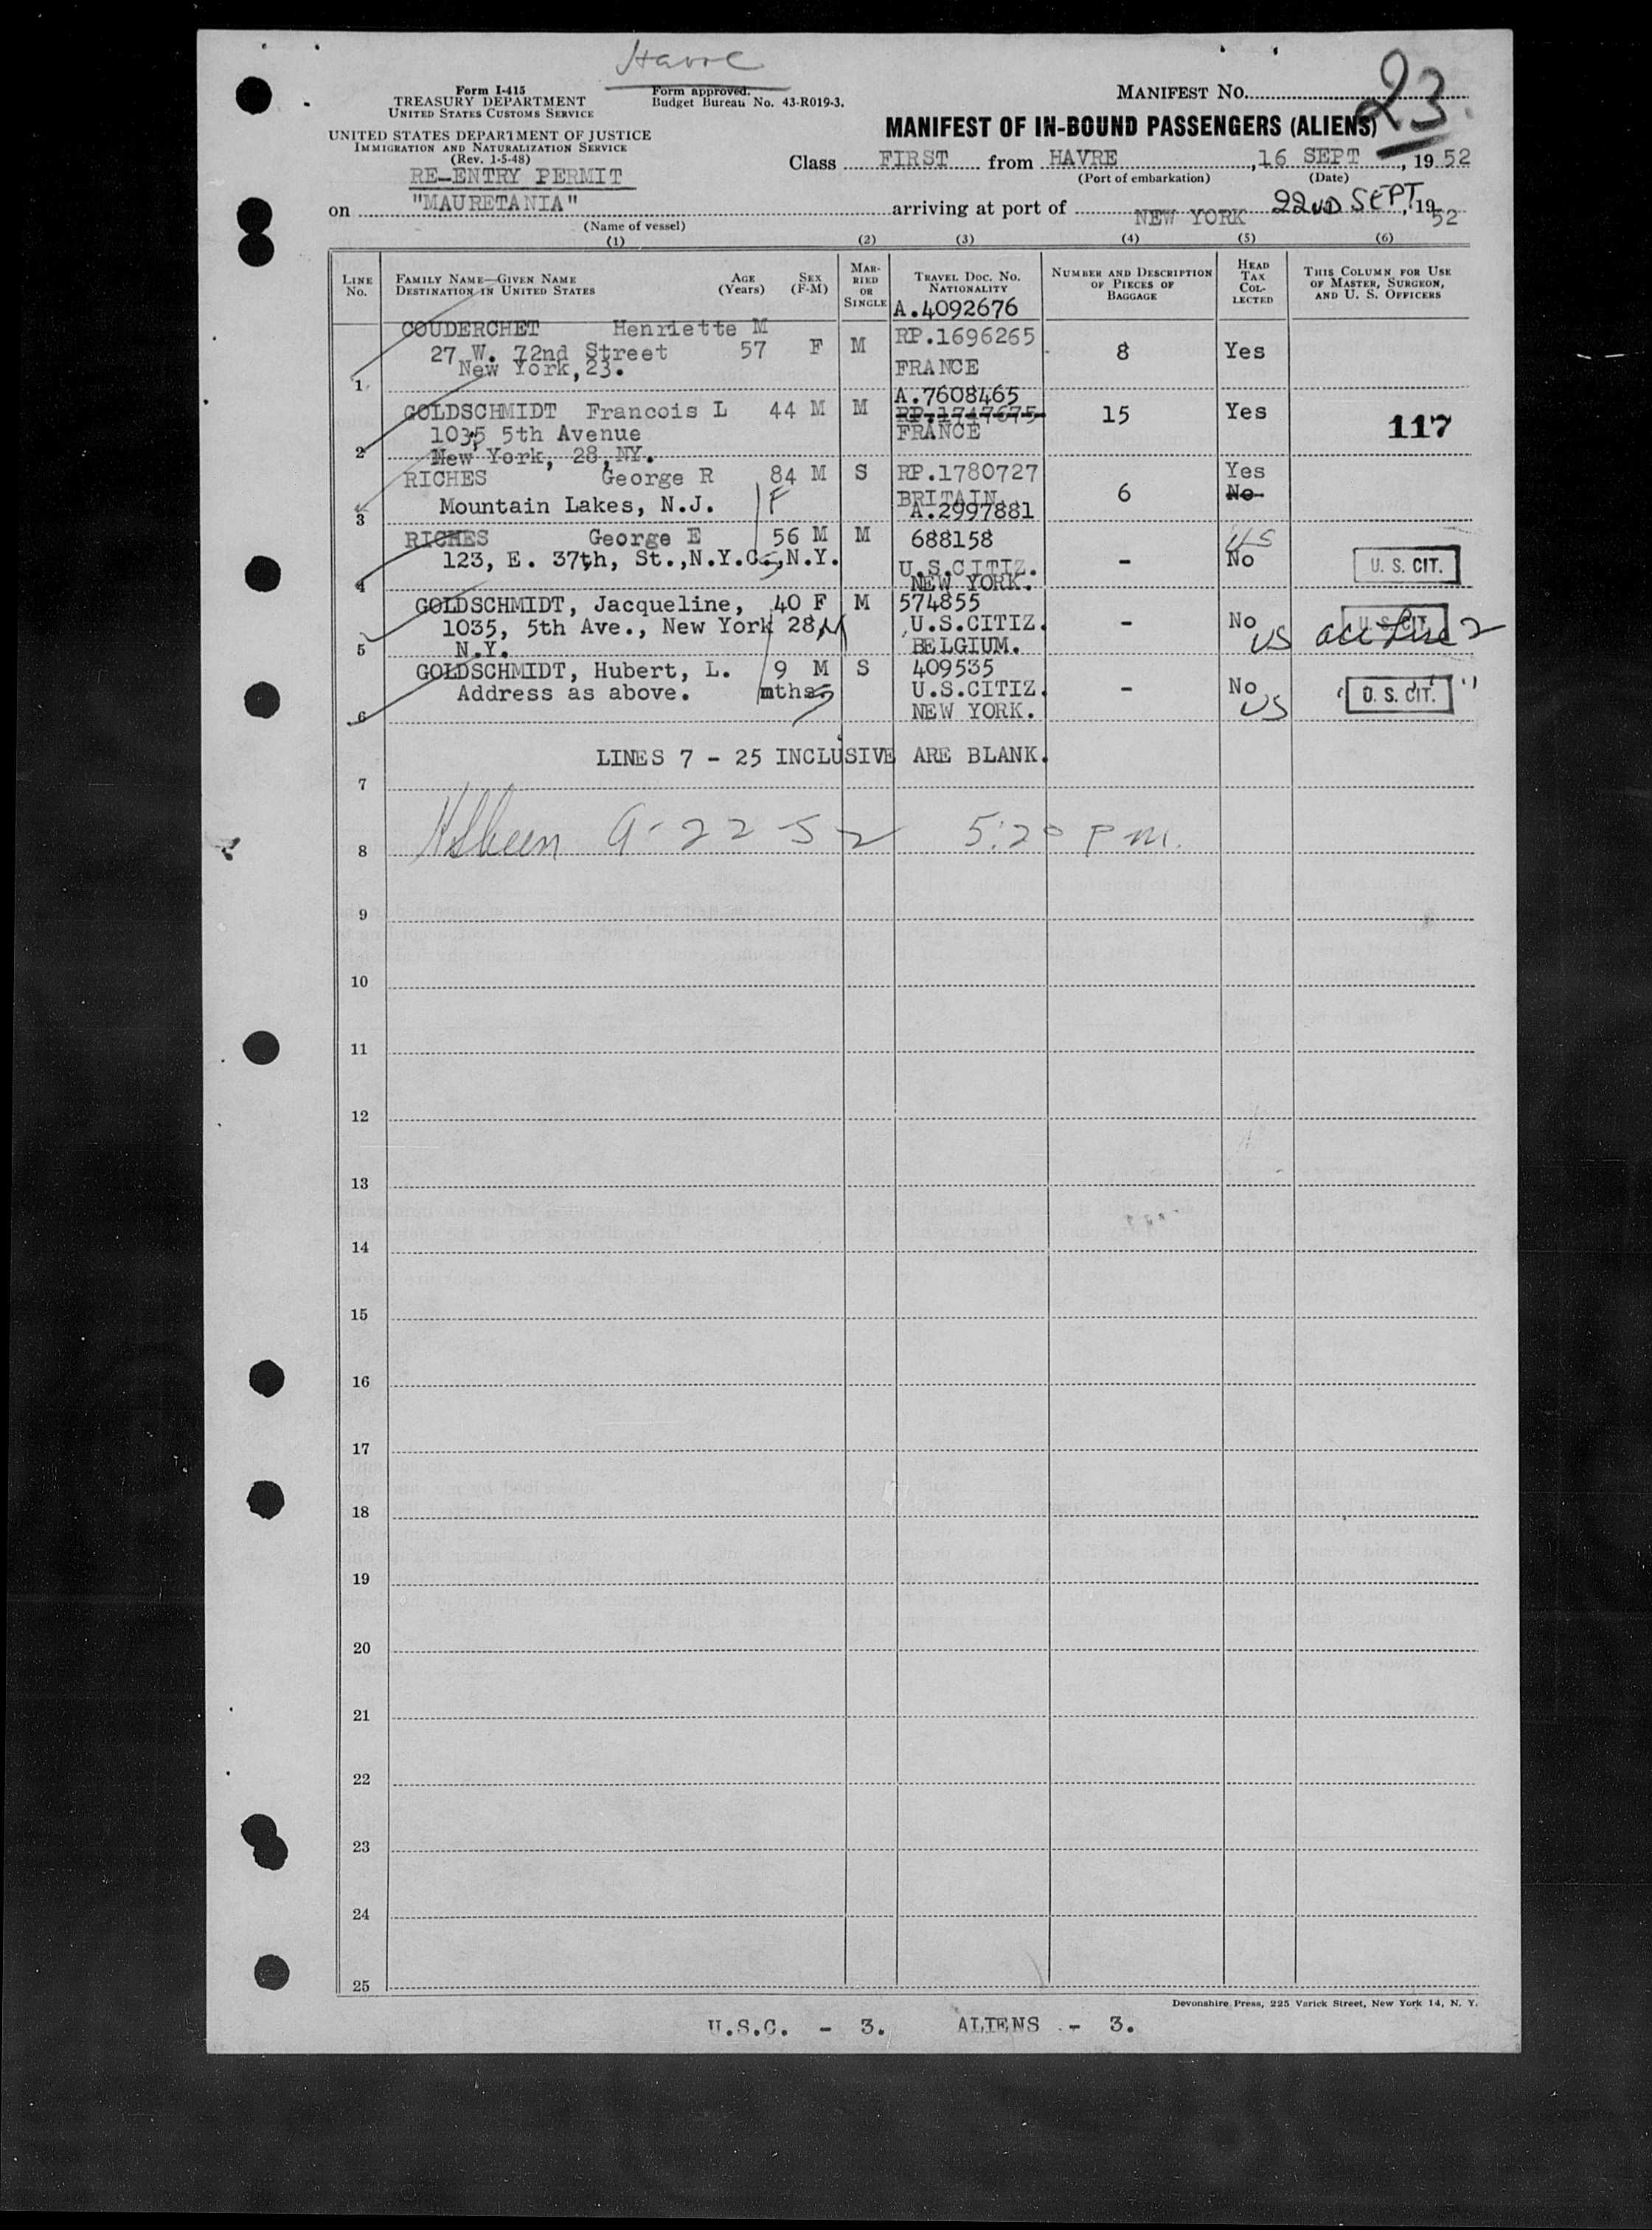 Havre
Form I-415
TREASURY DEPARTMENT
UNITED STATES CUSTOMS SERVICE
UNITED STATES DEPARTMENT OF JUSTICE
IMMIGRATION AND NATURALIZATION SERVICE
(Rev. 1-5-48)
Form approved.
Budget Bureau No. 43-R019-3.
MANIFEST No. 23.
MANIFEST OF IN-BOUND PASSENGERS (ALIENS)
Class FIRST from HAVRE, 16 SEPT, 1952
(Port of embarkation) (Date)
RE-ENTRY PERMIT
on "MAURETANIA" arriving at port of NEW YORK 22ND SEPT, 1952
(Name of vessel)
(1) (2) (3) (4) (5) (6)
LINE No. FAMILY NAME—GIVEN NAME DESTINATION IN UNITED STATES AGE (Years) SEX (F-M) MARRIED OR SINGLE TRAVEL DOC. NO. NATIONALITY NUMBER AND DESCRIPTION OF PIECES OF BAGGAGE HEAD TAX COLLECTED THIS COLUMN FOR USE OF MASTER, SURGEON, AND U. S. OFFICERS
A.4092676
COUDERCHET Henriette M RP.1696265
27 W. 72nd Street 57 F M 8 Yes
New York, 23. FRANCE
1
A.7608465
GOLDSCHMIDT Francois L 44 M M RP.1747675 15 Yes
1035 5th Avenue FRANCE 117
2 New York, 28, NY.
RICHES George R 84 M S RP.1780727 Yes
Mountain Lakes, N.J. F BRITAIN 6 No
3 A.2997881
RICHES George E 56 M M 688158 US
123, E. 37th, St.,N.Y.C.,N.Y. U.S.CITIZ. - No U. S. CIT.
4 NEW YORK.
GOLDSCHMIDT, Jacqueline, 40 F M 574855
1035, 5th Ave., New York 28, U.S.CITIZ. - No US U. S. CIT. acc Line 2
5 N.Y. BELGIUM.
GOLDSCHMIDT, Hubert, L. 9 M S 409535
Address as above. mths U.S.CITIZ. - No US " U. S. CIT. "
6 NEW YORK.
LINES 7 - 25 INCLUSIVE ARE BLANK.
7
8 9-22-52 5:20 P m.
9
10
11
12
13
14
15
16
17
18
19
20
21
22
23
24
25
Devonshire Press, 225 Varick Street, New York 14, N. Y.
U.S.C. - 3. ALIENS - 3.